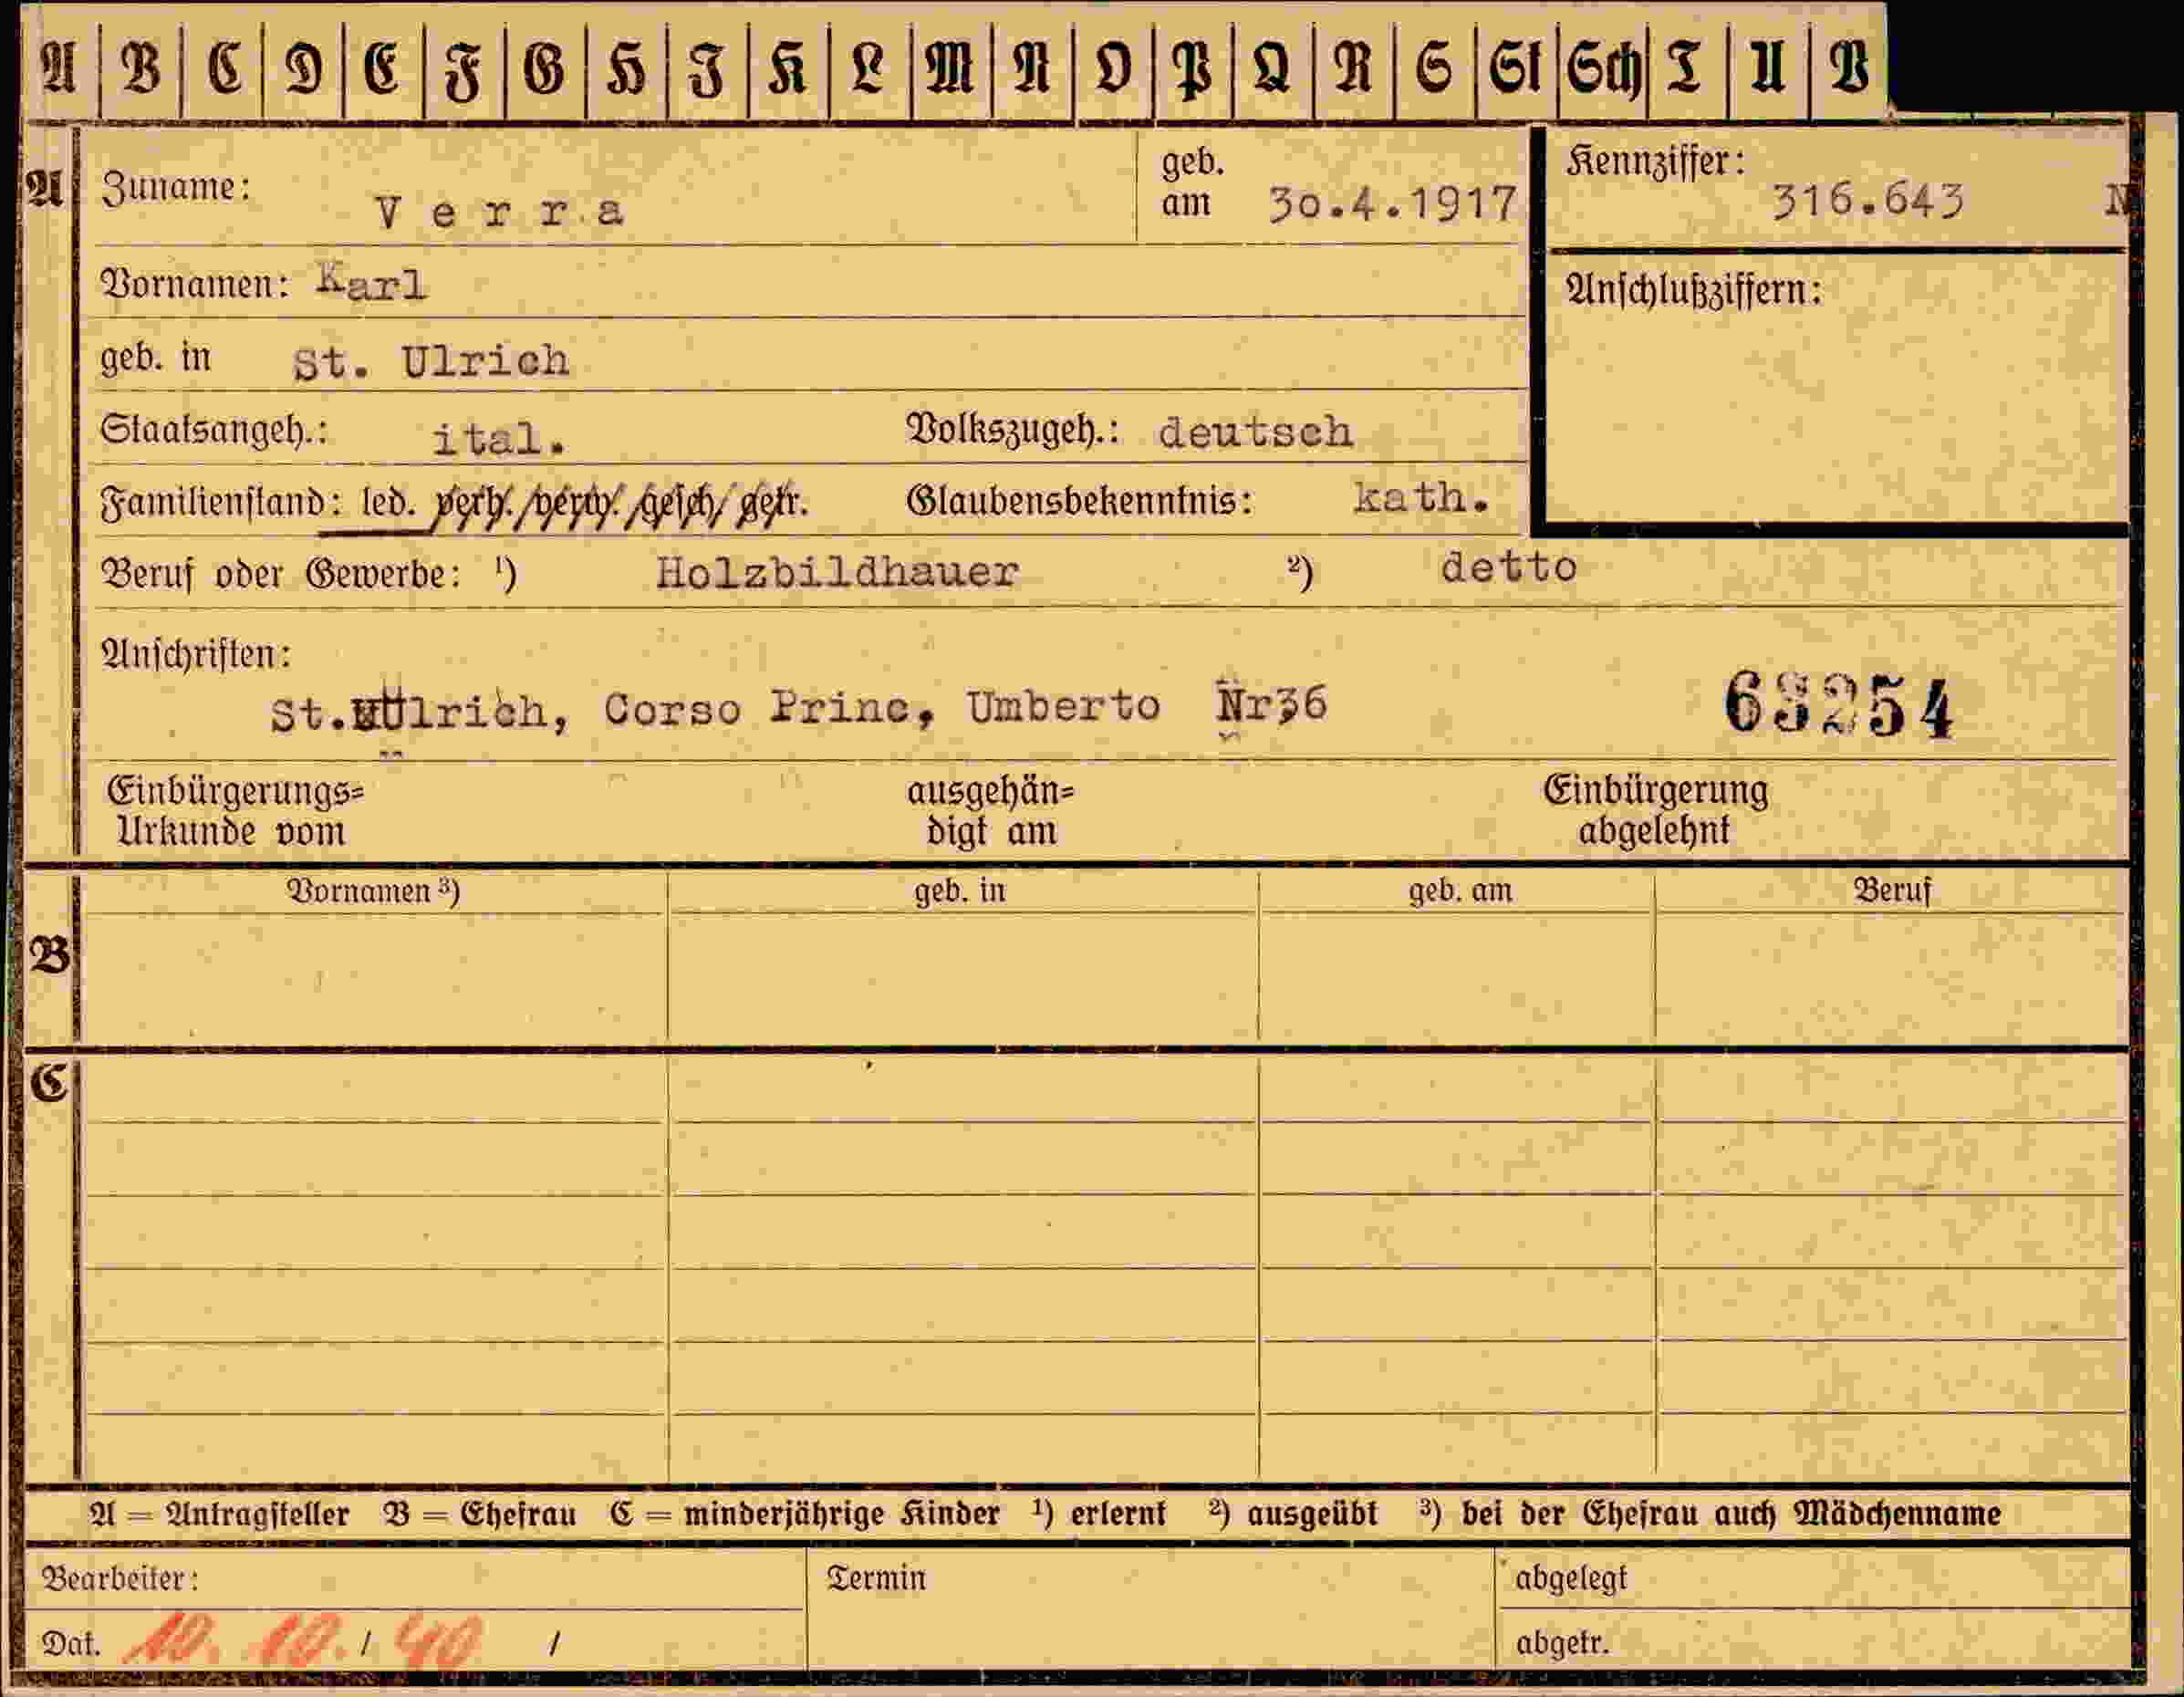 A B C D E F G H J K L M N O P Q R S St Sch T U V
A Zuname: Verra geb. am 30.4.1917 Kennziffer: 316.643 N
Vornamen: Karl Anschlußziffern:
geb. in St. Ulrich
Staatsangeh.: ital. Volkszugeh.: deutsch
Familienstand: led. verh./verw./gesch/ getr. Glaubensbekenntnis: kath.
Beruf oder Gewerbe: ¹) Holzbildhauer ²) detto
Anschriften:
St. Ulrich, Corso Princ, Umberto Nr36 63254
Einbürgerungs= ausgehän= Einbürgerung
Urkunde vom digt am abgelehnt
Vornamen ³) geb. in geb. am Beruf
B
C
A = Antragsteller B = Ehefrau C = minderjährige Kinder ¹) erlernt ²) ausgeübt ³) bei der Ehefrau auch Mädchenname
Bearbeiter: Termin abgelegt
Dat. 10. 10. / 40 / abgetr.